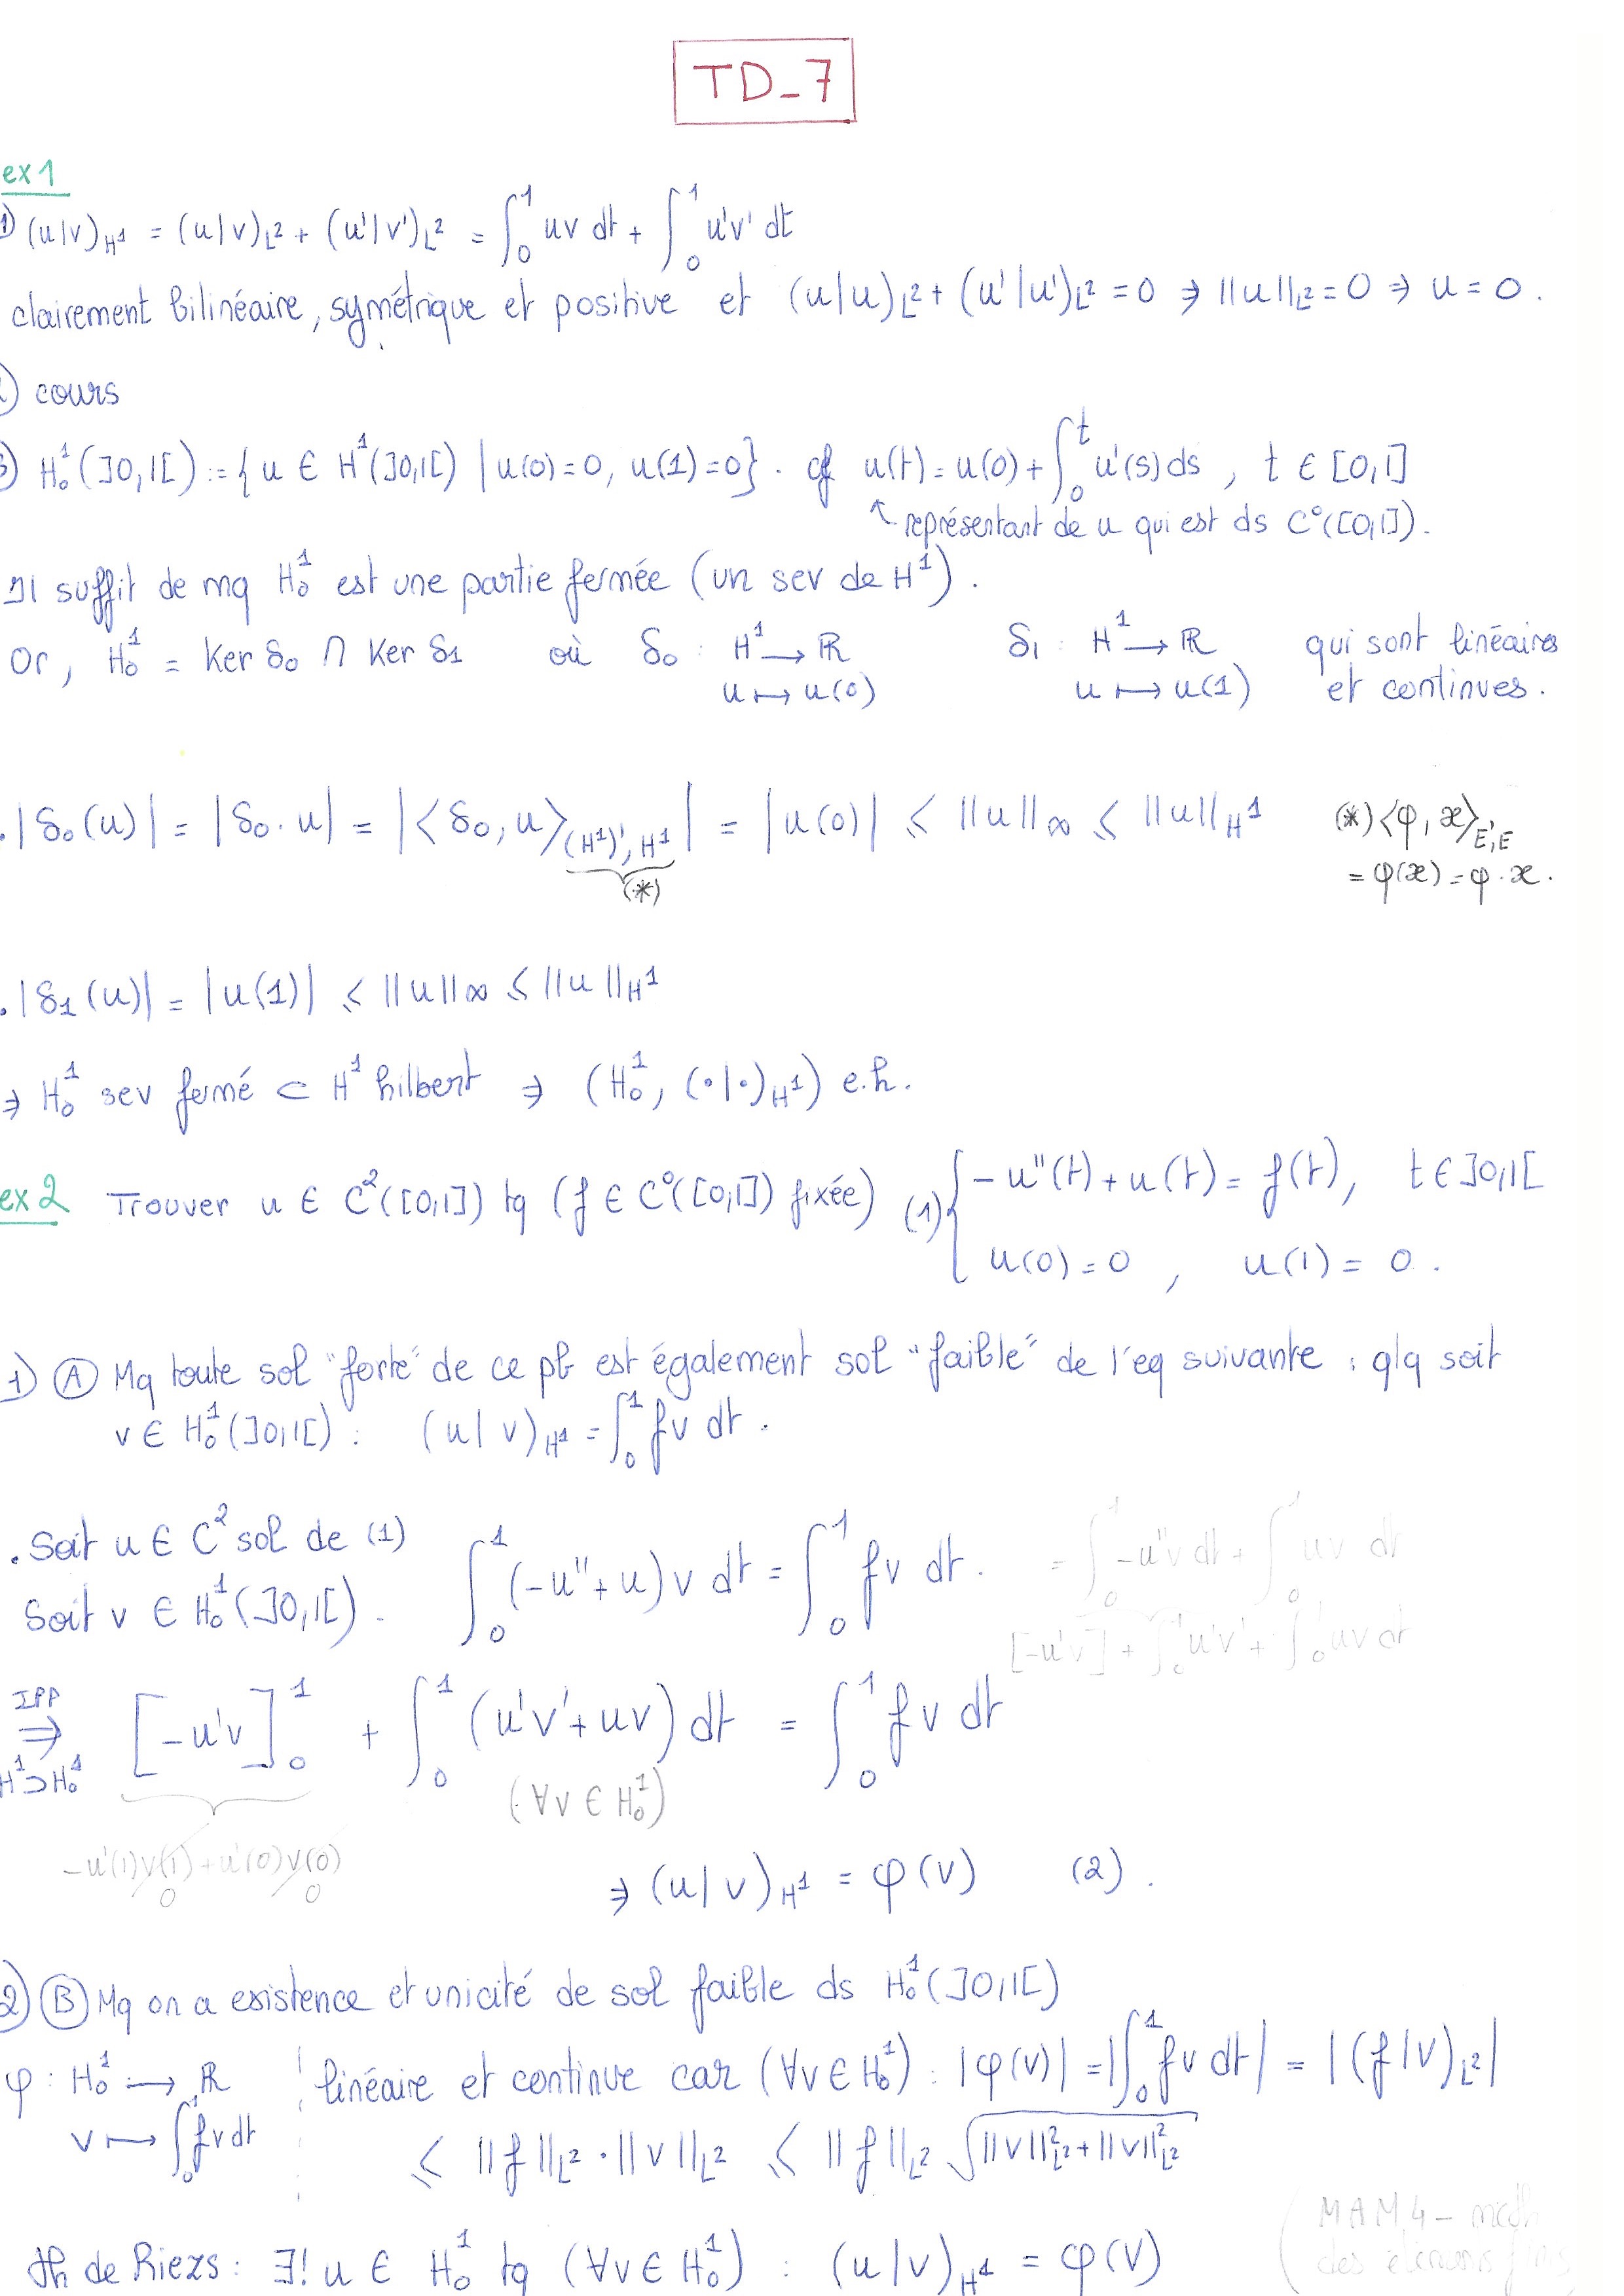 TD_7
ex 1
1) (u|v)_{H^1} = (u|v)_{L^2} + (u'|v')_{L^2} = ∫_0^1 uv dt + ∫_0^1 u'v' dt
clairement bilinéaire, symétrique et positive et (u|u)_{L^2} + (u'|u')_{L^2} = 0 ⇒ ||u||_{L^2} = 0 ⇒ u = 0.
2) cours
3) H^1_0(]0,1[) := {u ∈ H^1(]0,1[) | u(0)=0, u(1)=0}. cf u(t) = u(0) + ∫_0^t u'(s)ds, t ∈ [0,1]
↖ représentant de u qui est ds C°([0,1]).
Il suffit de mq H^1_0 est une partie fermée (un sev de H^1).
Or, H^1_0 = Ker δ_0 ∩ Ker δ_1 où δ_0 : H^1 → ℝ δ_1 : H^1 → ℝ qui sont linéaires
u ↦ u(0) u ↦ u(1) et continues.
. |δ_0(u)| = |δ_0 · u| = |<δ_0, u>_{(H^1)', H^1}| = |u(0)| ≤ ||u||_∞ ≤ ||u||_{H^1} (*) <φ, x>_{E',E}
(*) = φ(x) = φ · x.
. |δ_1(u)| = |u(1)| ≤ ||u||_∞ ≤ ||u||_{H^1}
⇒ H^1_0 sev fermé ⊂ H^1 hilbert ⇒ (H^1_0, (·|·)_{H^1}) e.h.
ex 2 Trouver u ∈ C^2([0,1]) tq (f ∈ C°([0,1]) fixée) (1) { -u''(t) + u(t) = f(t), t ∈ ]0,1[
u(0) = 0 , u(1) = 0.
1) (A) Mq toute sol "forte" de ce pb est également sol "faible" de l'eq suivante : qlq soit
v ∈ H^1_0(]0,1[) : (u|v)_{H^1} = ∫_0^1 fv dt.
. Soit u ∈ C^2 sol de (1)
Soit v ∈ H^1_0(]0,1[). ∫_0^1 (-u''+u)v dt = ∫_0^1 fv dt. = ∫_0^1 -u''v dt + ∫_0^1 uv dt
[-u'v] + ∫_0^1 u'v' + ∫_0^1 uv dt
IPP
⇒ [-u'v]_0^1 + ∫_0^1 (u'v' + uv) dt = ∫_0^1 fv dt
H^1 ⊃ H^1_0
(∀v ∈ H^1_0)
-u'(1)v(1) + u'(0)v(0)
0 0
⇒ (u|v)_{H^1} = φ(v) (2).
2) (B) Mq on a existence et unicité de sol faible ds H^1_0(]0,1[)
φ : H^1_0 → ℝ linéaire et continue car (∀v ∈ H^1_0) : |φ(v)| = |∫_0^1 fv dt| = |(f|v)_{L^2}|
v ↦ ∫_0^1 fv dt ≤ ||f||_{L^2} · ||v||_{L^2} ≤ ||f||_{L^2} √(||v||^2_{L^2} + ||v||^2_{L^2})
MAM4 -
th de Riezs : ∃! u ∈ H^1_0 tq (∀v ∈ H^1_0) : (u|v)_{H^1} = φ(v)
des éléments finis